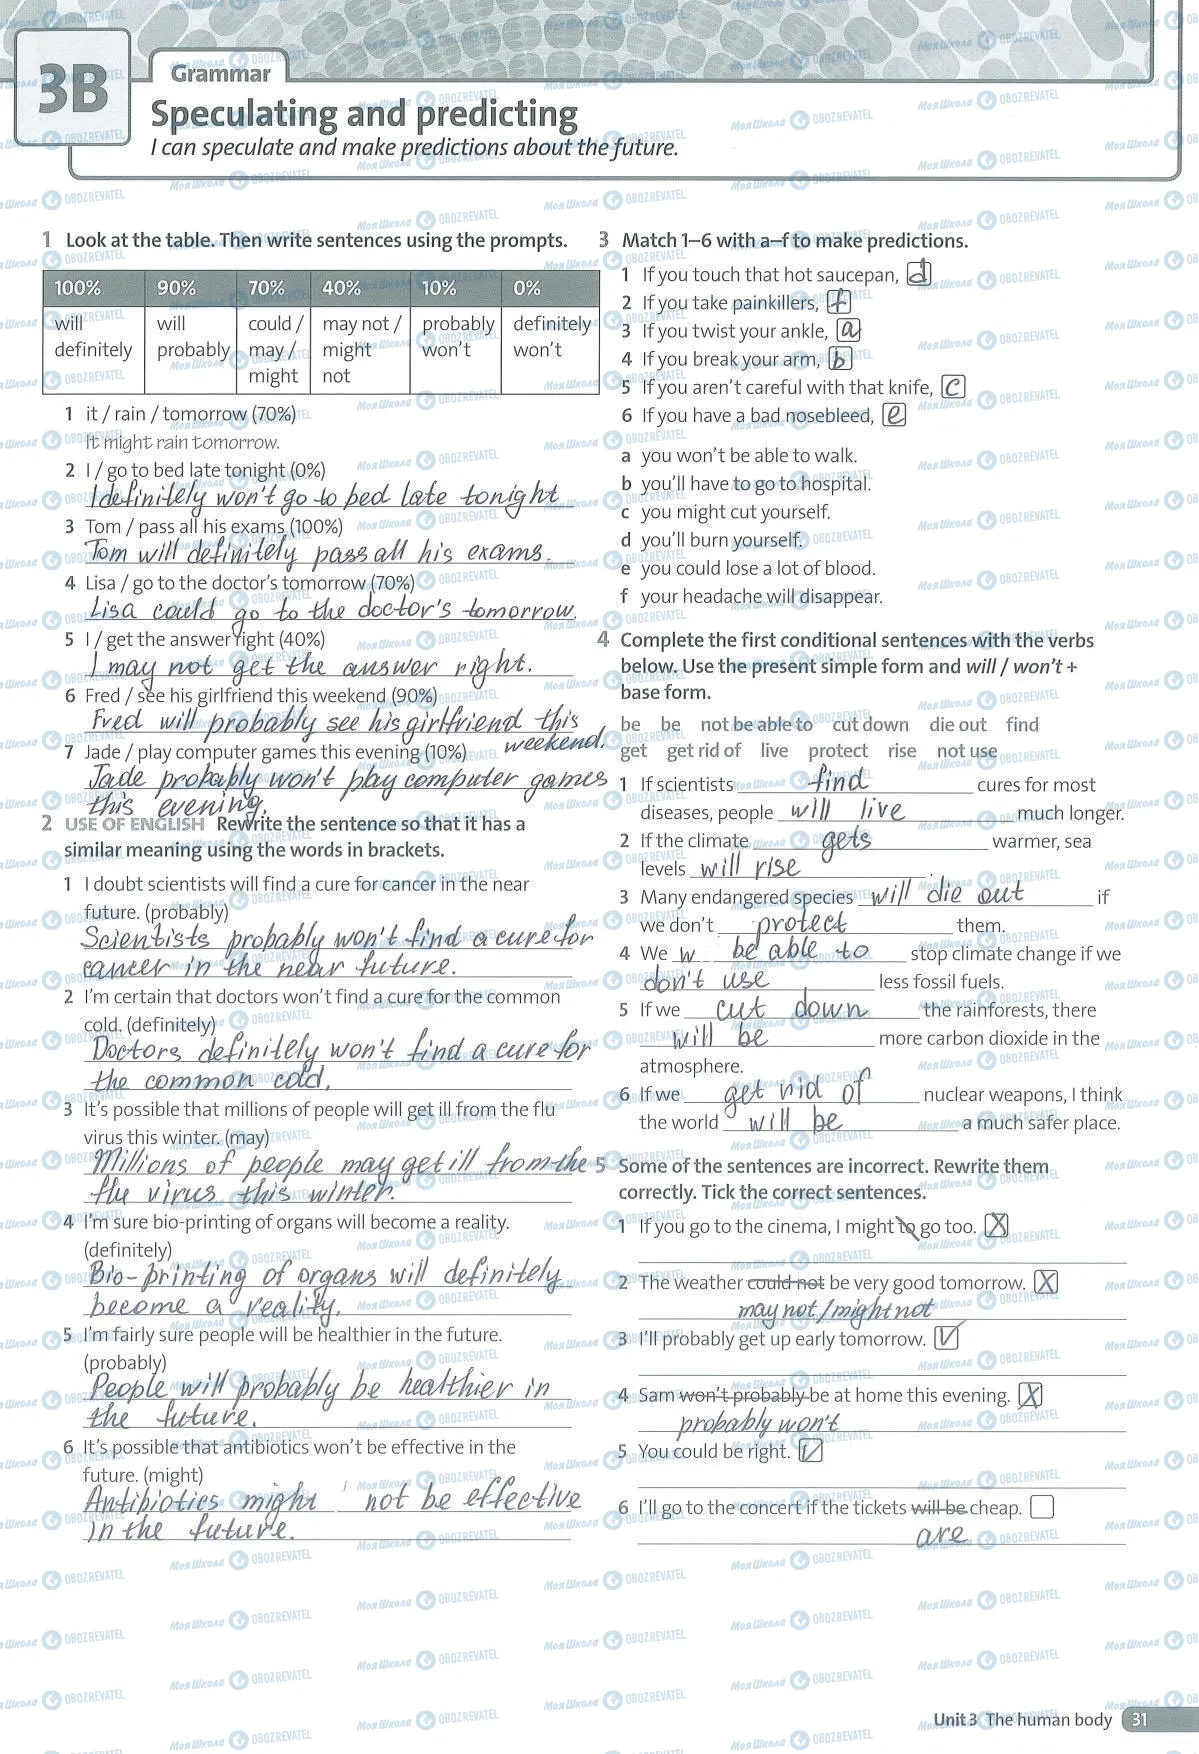 3B
Grammar
Speculating and predicting
I can speculate and make predictions about the future.
1 Look at the table. Then write sentences using the prompts.
100% 90% 70% 40% 10% 0%
will definitely
will probably
could / may / might
may not / might not
probably won't
definitely won't
1 it / rain / tomorrow (70%)
It might rain tomorrow.
2 I / go to bed late tonight (0%)
I definitely won't go to bed late tonight
3 Tom / pass all his exams (100%)
Tom will definitely pass all his exams.
4 Lisa / go to the doctor's tomorrow (70%)
Lisa could go to the doctor's tomorrow.
5 I / get the answer right (40%)
I may not get the answer right.
6 Fred / see his girlfriend this weekend (90%)
Fred will probably see his girlfriend this
weekend.
7 Jade / play computer games this evening (10%)
Jade probably won't play computer games
this evening.
2 USE OF ENGLISH Rewrite the sentence so that it has a
similar meaning using the words in brackets.
1 I doubt scientists will find a cure for cancer in the near
future. (probably)
Scientists probably won't find a cure for
cancer in the near future.
2 I'm certain that doctors won't find a cure for the common
cold. (definitely)
Doctors definitely won't find a cure for
the common cold.
3 It's possible that millions of people will get ill from the flu
virus this winter. (may)
Millions of people may get ill from the
flu virus this winter.
4 I'm sure bio-printing of organs will become a reality.
(definitely)
Bio-printing of organs will definitely
become a reality.
5 I'm fairly sure people will be healthier in the future.
(probably)
People will probably be healthier in
the future.
6 It's possible that antibiotics won't be effective in the
future. (might)
Antibiotics might not be effective
in the future.
3 Match 1–6 with a–f to make predictions.
1 If you touch that hot saucepan, d
2 If you take painkillers, f
3 If you twist your ankle, a
4 If you break your arm, b
5 If you aren't careful with that knife, c
6 If you have a bad nosebleed, e
a you won't be able to walk.
b you'll have to go to hospital.
c you might cut yourself.
d you'll burn yourself.
e you could lose a lot of blood.
f your headache will disappear.
4 Complete the first conditional sentences with the verbs
below. Use the present simple form and will / won't +
base form.
be be not be able to cut down die out find
get get rid of live protect rise not use
1 If scientists find cures for most
diseases, people will live much longer.
2 If the climate gets warmer, sea
levels will rise .
3 Many endangered species will die out if
we don't protect them.
4 We w be able to stop climate change if we
don't use less fossil fuels.
5 If we cut down the rainforests, there
will be more carbon dioxide in the
atmosphere.
6 If we get rid of nuclear weapons, I think
the world will be a much safer place.
5 Some of the sentences are incorrect. Rewrite them
correctly. Tick the correct sentences.
1 If you go to the cinema, I might to go too. X
2 The weather could not be very good tomorrow. X
may not / might not
3 I'll probably get up early tomorrow. V
4 Sam won't probably be at home this evening. X
probably won't
5 You could be right. V
6 I'll go to the concert if the tickets will be cheap.
are
Unit 3 The human body 31
Моя Школа OBOZREVATEL